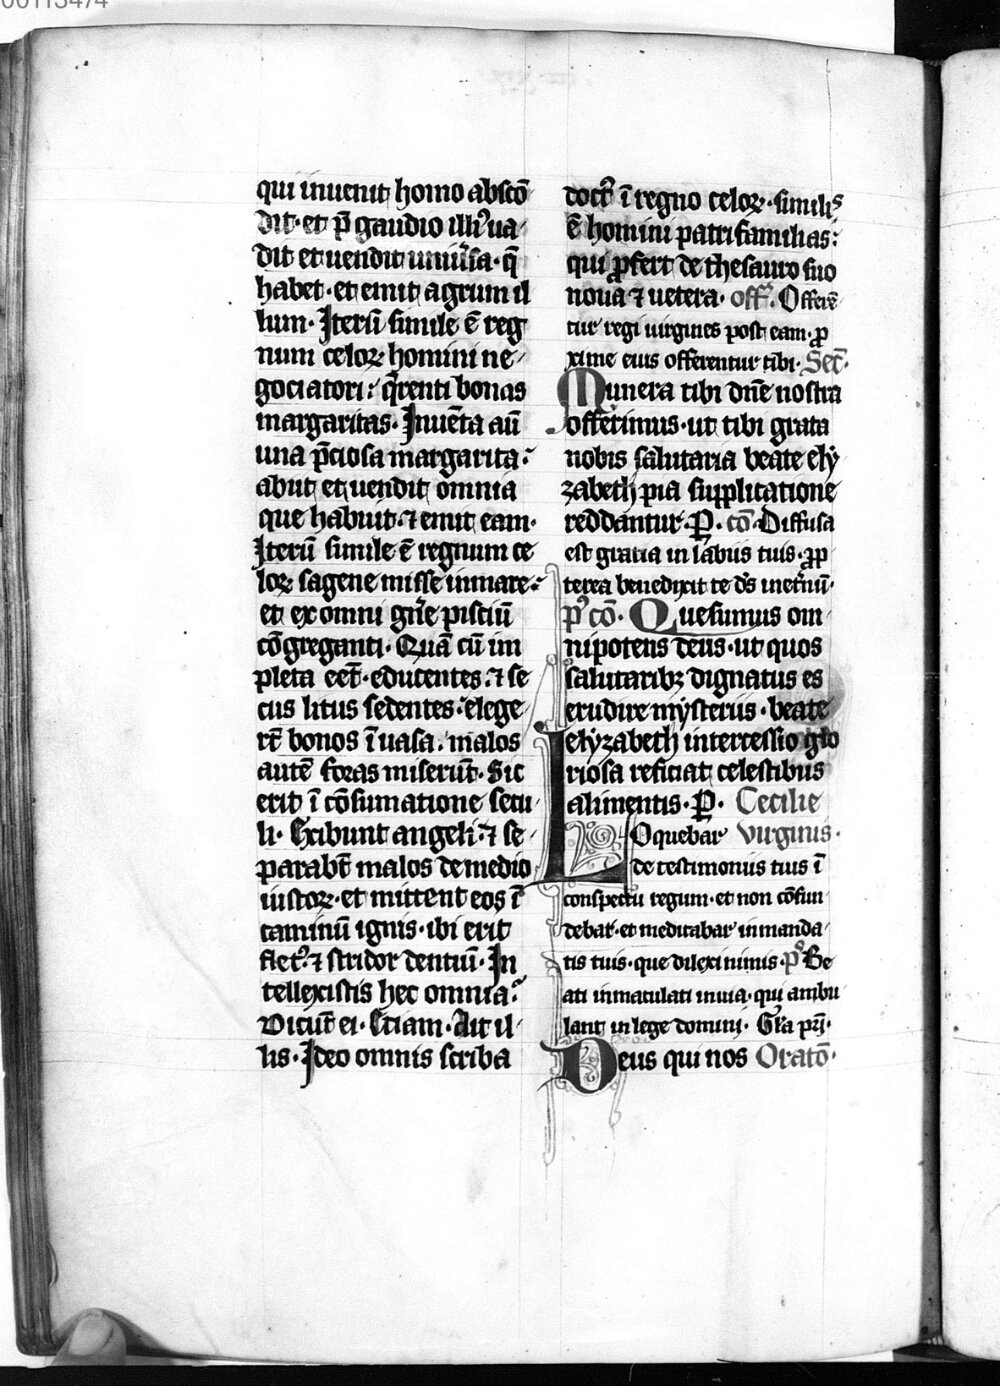 00113474
qui inuenit homo absco̅
dit· et p̲ gaudio illiꝰ ua
dit et uendit uniu̾sa· q̅
habet· et emit agrum il
lum· Iteru̅ simile e̅ reg
num celoꝝ homini ne
gociatori· q̅renti bonas
margaritas· Inue̅ta au̅
una p̅ciosa margarita·
abiit et uendit omnia
que habuit· ⁊ emit eam·
Iteru̅ simile e̅ regnum ce
loꝝ sagene misse in mare·
et ex omni gn̅e pisciu̅
co̅greganti· Qua̅ cu̅ im
pleta eet̅· educentes· ⁊ se
cus litus sedentes· elege
rt̅ bonos i̅ uasa· malos
aute̅ foras miseru̅t· Sic
erit i̅ co̅sumatione secu
li· Exibunt angeli· ⁊ se
parabt̅ malos de medio
iustoꝝ· et mittent eos i̅
caminu̅ ignis· ibi erit
fletꝰ· ⁊ stridor dentiu̅· In
tellexistis hec omnia·
Dicu̅t ei· Etiam· Ait il
lis· Ideo omnis scriba
doctꝰ i̅ regno celoꝝ· similis
e̅ homini patrifamilias·
qui ꝓfert de thesauro suo
noua ⁊ uetera· off̅· Offere̅
tur regi uirgines post eam· ꝓ
xime eius offerentur tibi· Sec̅·
Munera tibi dn̅e nostra
offerimus· ut tibi grata
nobis salutaria beate ely
zabeth pia supplicatione
reddantur· P̲· co̅· Diffusa
est gratia in labiis tuis· ꝓp
terea benedixit te ds̅ inet̾nu̅·
pꝰ co̅· Quesumus om
nipotens deus· ut quos
salutaribꝫ dignatus es
erudire mysteriis· beate
elyzabeth intercessio glo
riosa reficiat celestibus
alimentis· P̲· Cecilie
Loquebar Virginis·
de testimoniis tuis i̅
conspectu regum· et non co̅fun
debar· et meditabar in manda
tis tuis· que dilexi nimis· pˢ Be
ati inmaculati in uia· qui ambu
lant in lege domini· Gl̅a pr̅i·
Deus qui nos Oratio̅·